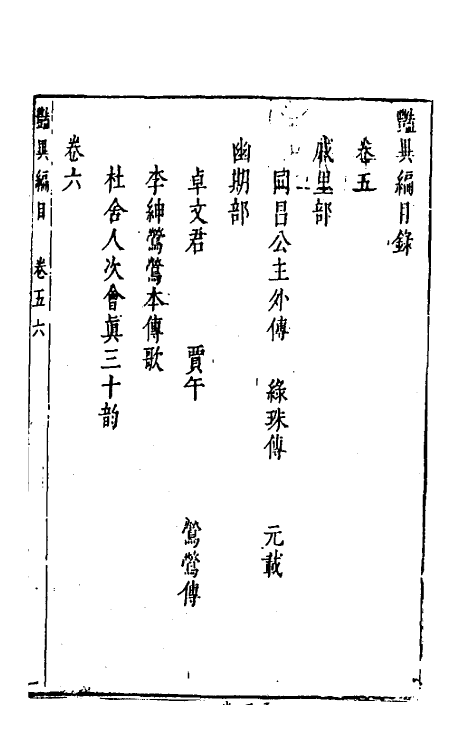 豔異編目錄
卷五
戚里部
同昌公主外傳 綠珠傳 元載
幽期部
卓文君 賈午 鶯鶯傳
李紳鶯鶯本傳歌
杜舍人次會真三十韵
卷六
豔異編目 卷五六